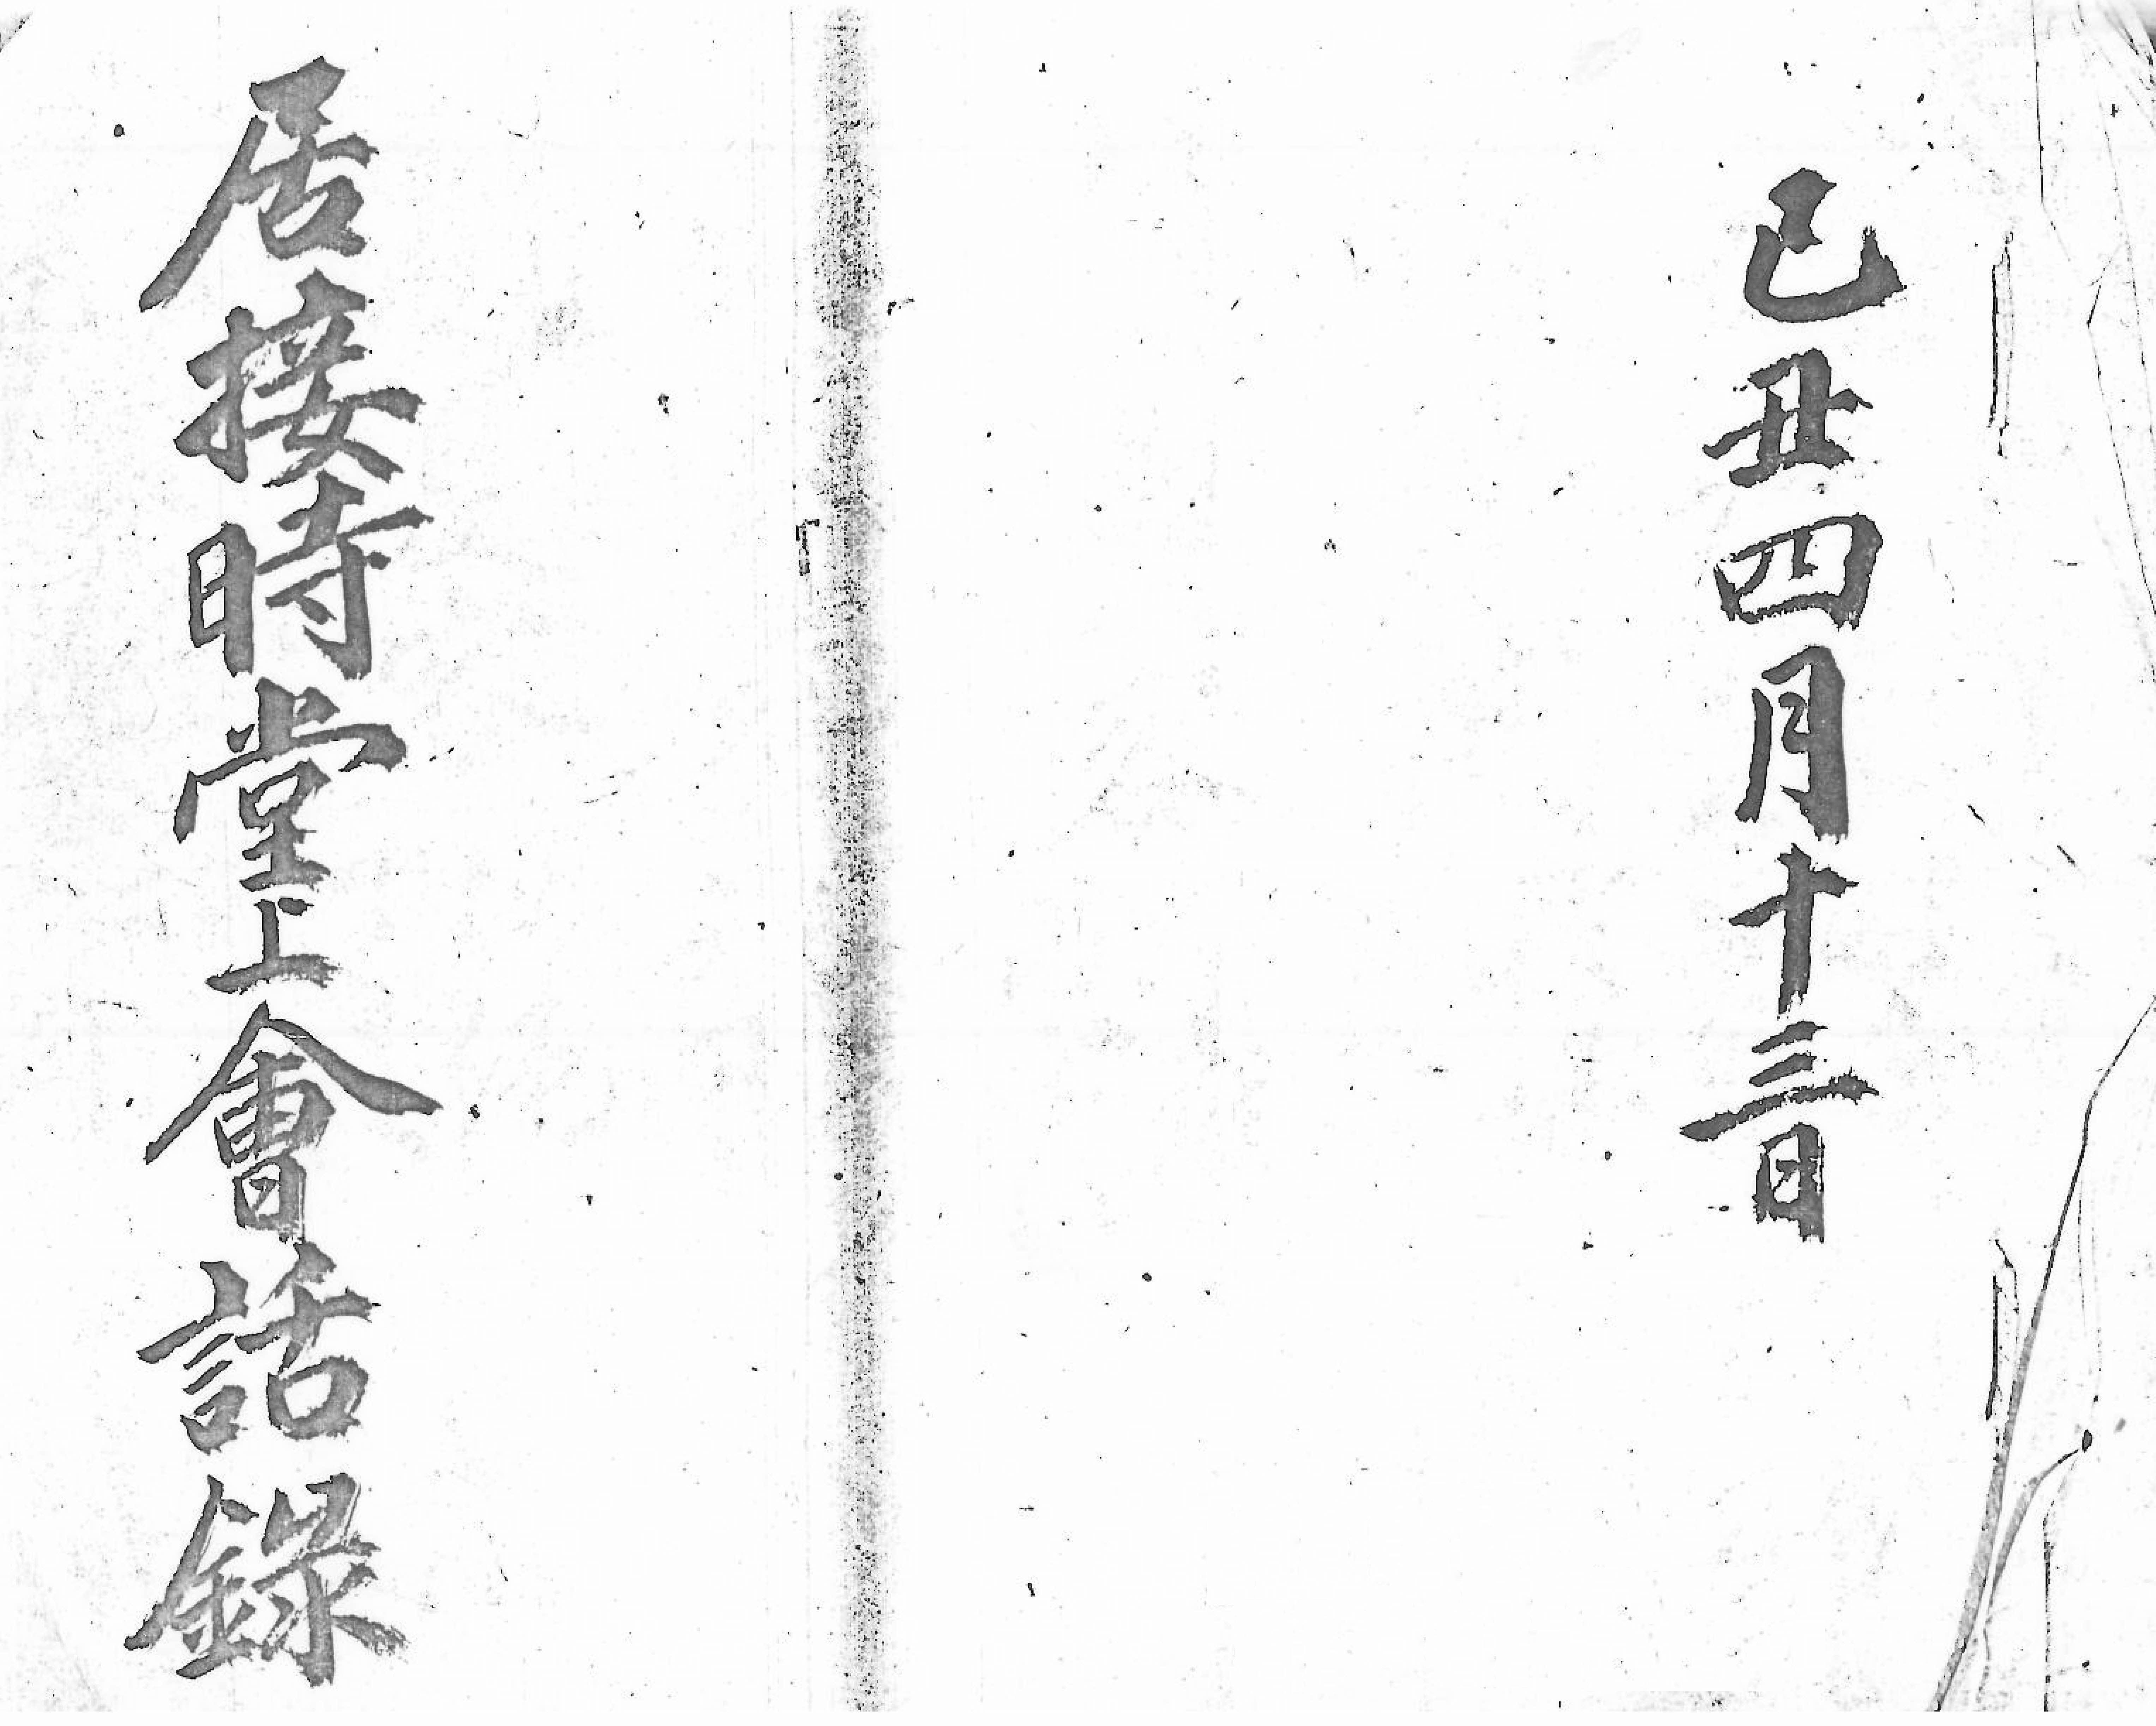 己丑四月十三日
居接時堂上會話錄